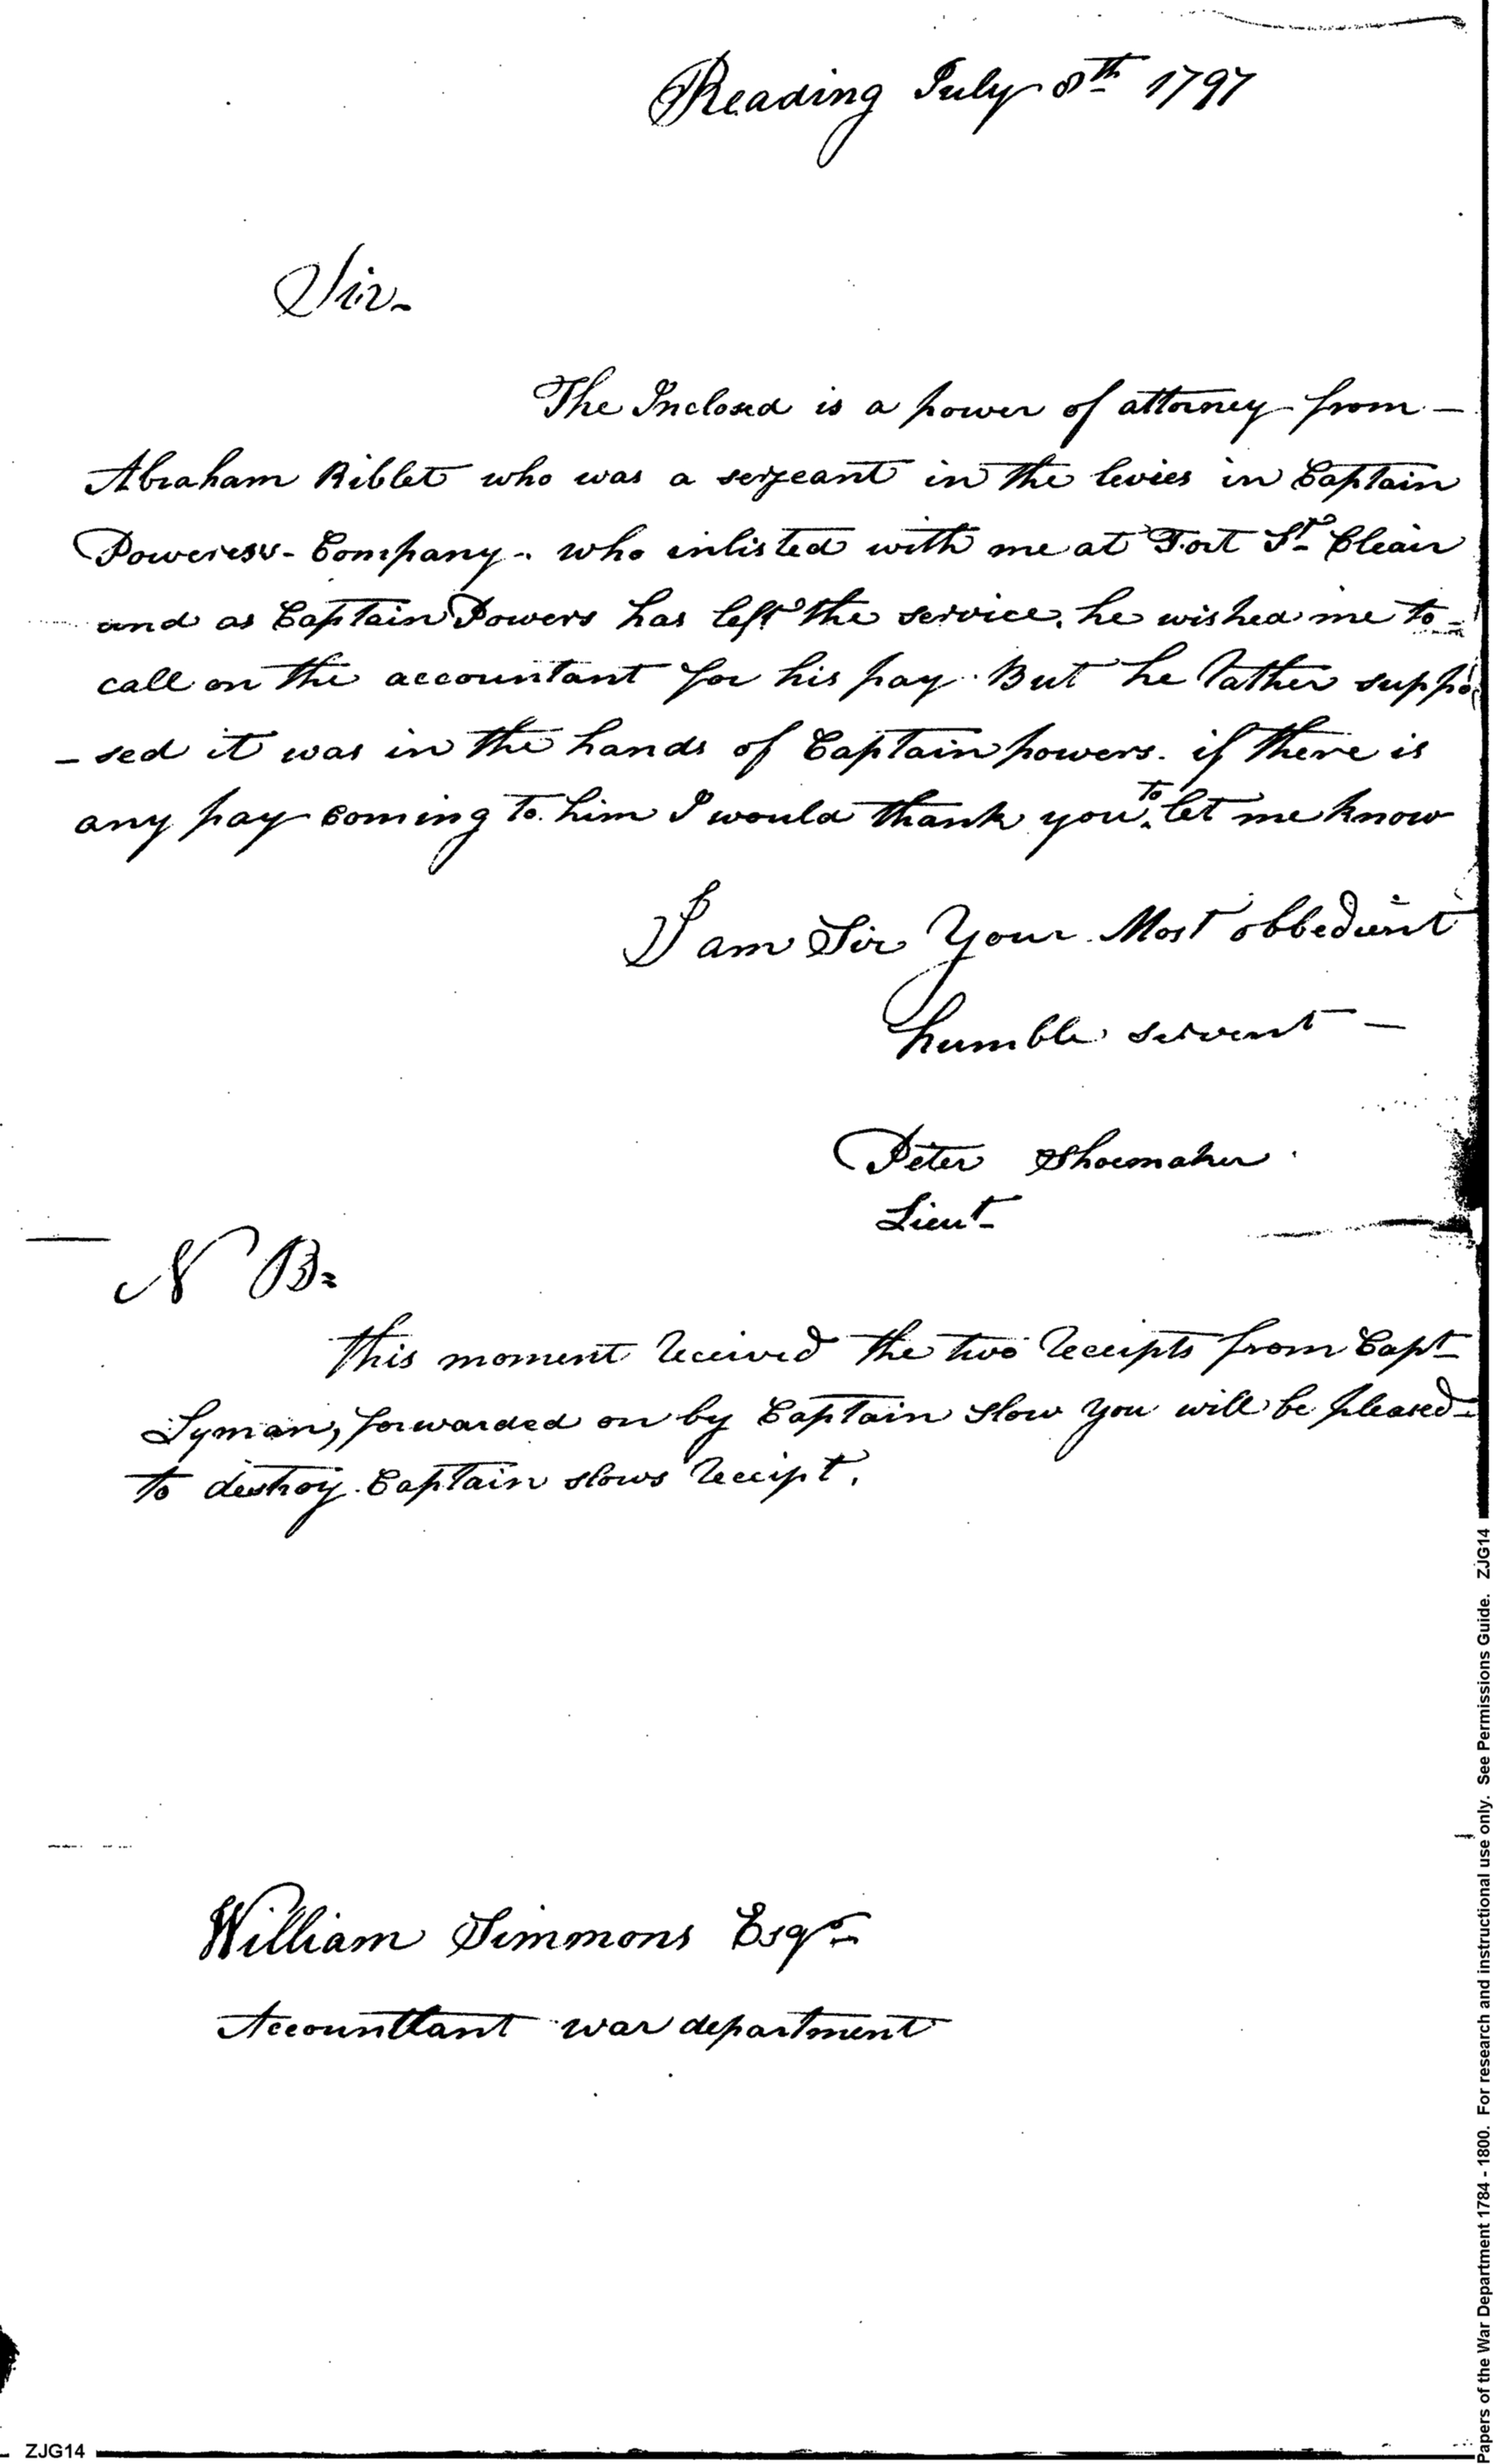 Reading July 8th 1797
Sir-
The Inclosed is a power of attorney from -
Abraham Riblet who was a serjeant in the levies in Captain
Poweress- Company - who inlisted with me at Fort St Cleair
and as Captain Powers has left the service, he wished me to -
call on the accountant for his pay. But he rather suppo
- sed it was in the hands of Captain powers. if there is
any pay coming to him I would thank you to let me know
I am Sir Your Most obbedient
humble servent -
Peter Shoemaker
Lieut
N B=
this moment received the two receipts from Capt
Lyman, forwarded on by Captain Slow you will be pleased -
to destroy. Captain slows receipt.
William Simmons Esqr
Accounttant war department
ZJG14
Papers of the War Department 1784 - 1800. For research and instructional use only. See Permissions Guide. ZJG14